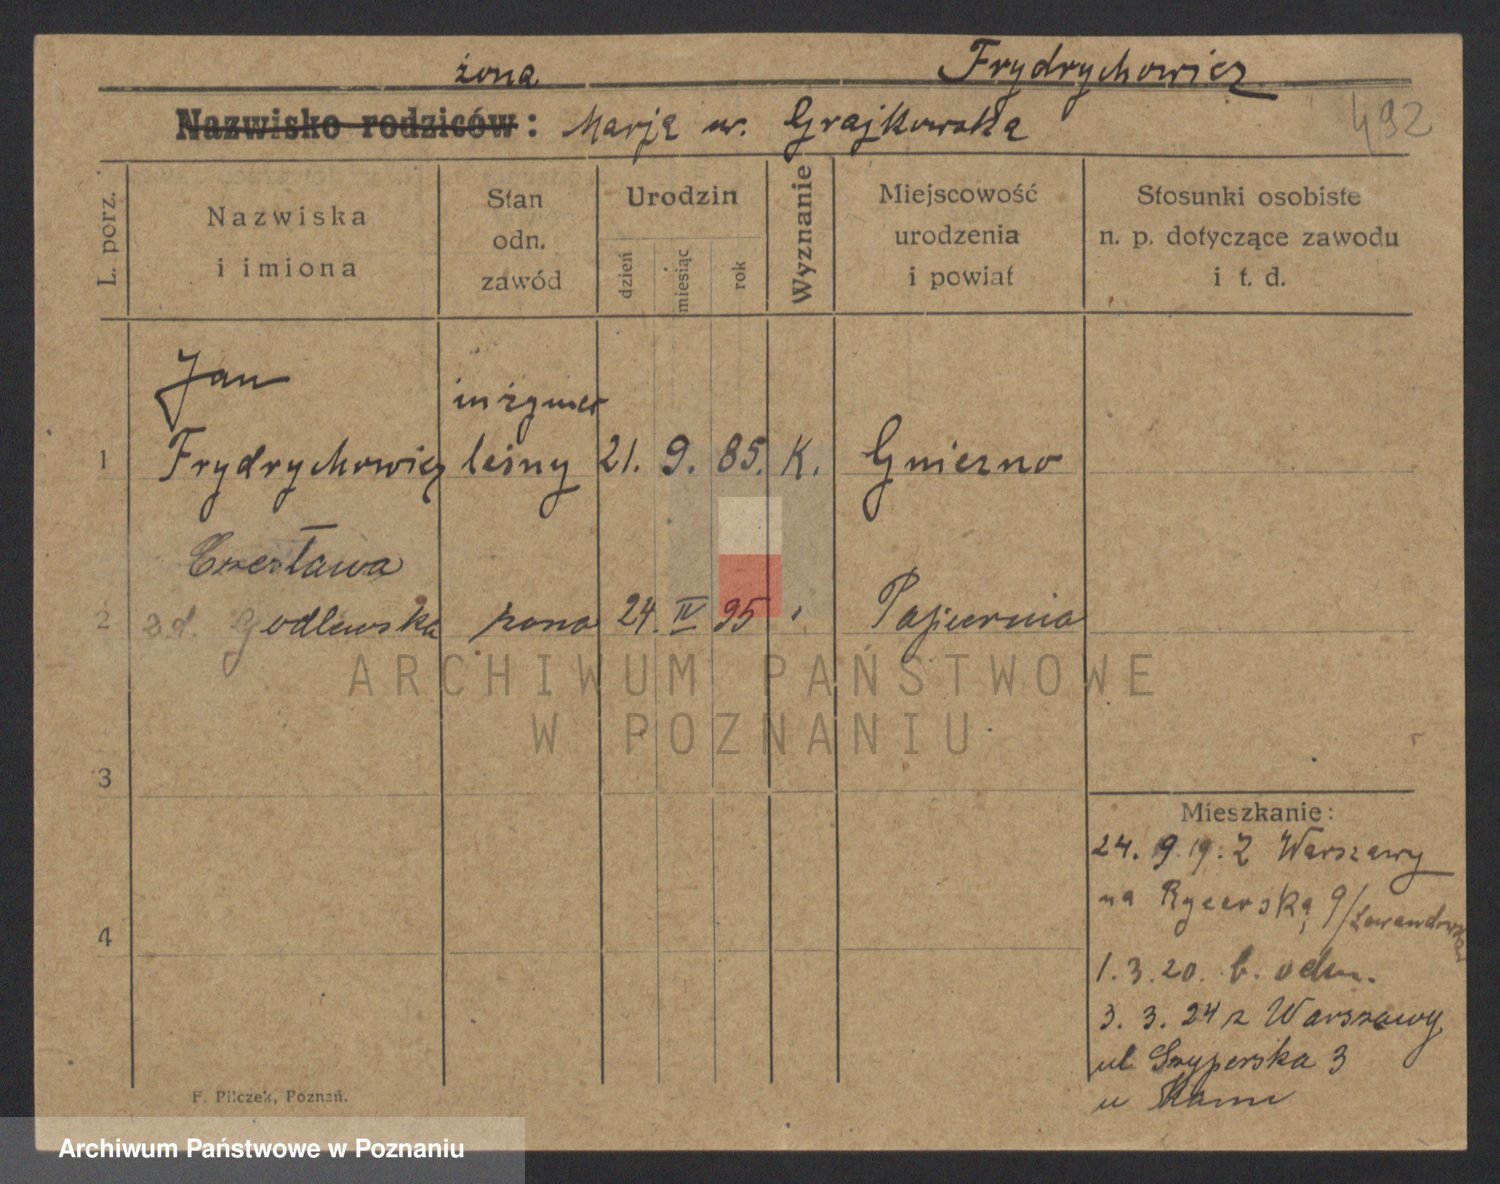 żona Frydrychowicz
Nazwisko rodziców: Marją ur. Grajkowska
492
L. porz.
Nazwiska
i imiona
Stan
odn.
zawód
Urodzin
dzień
miesiąc
rok
Wyznanie
Miejscowość
urodzenia
i powiat
Stosunki osobiste
n. p. dotyczące zawodu
i t. d.
Jan inżynier
1 Frydrychowicz leśny 21. 9. 85. K. Gniezno
Czesława
2 zd. Godlewska żona 24. IV 95 Papiernia
ARCHIWUM PAŃSTWOWE
W POZNANIU
3
Mieszkanie:
24. 9. 19. Z Warszawy
na Rycerską 9/
4
1. 3. 20. b. odm.
3. 3. 24 z Warszawy
ul Szyperska 3
u
F. Pilczek, Poznań.
Archiwum Państwowe w Poznaniu